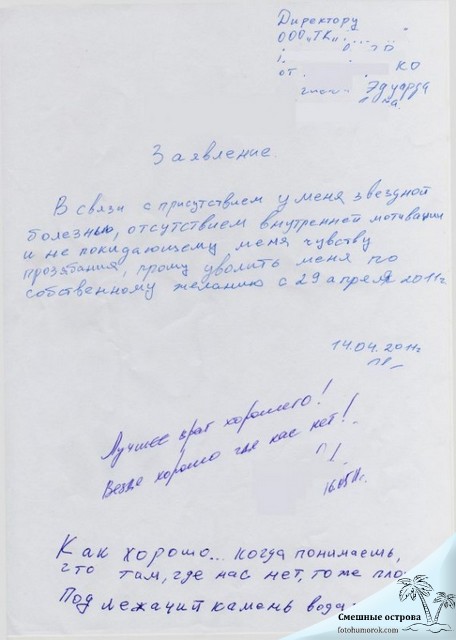 Директору
ООО "ТК"
от КО
Эдуарда
Заявление.
В связи с присутствием у меня звездной
болезнью, отсутствием внутренней мотивации
и не покидающему меня чувству
прозябания, прошу уволить меня по
собственному желанию с 29 апреля 2011г
14.04.2011г
Лучшее враг хорошего!
Везде хорошо где нас нет!
Как хорошо... когда понимаешь,
что там, где нас нет, тоже пло
Под лежачий камень вода
Смешные острова
fotohumorok.com